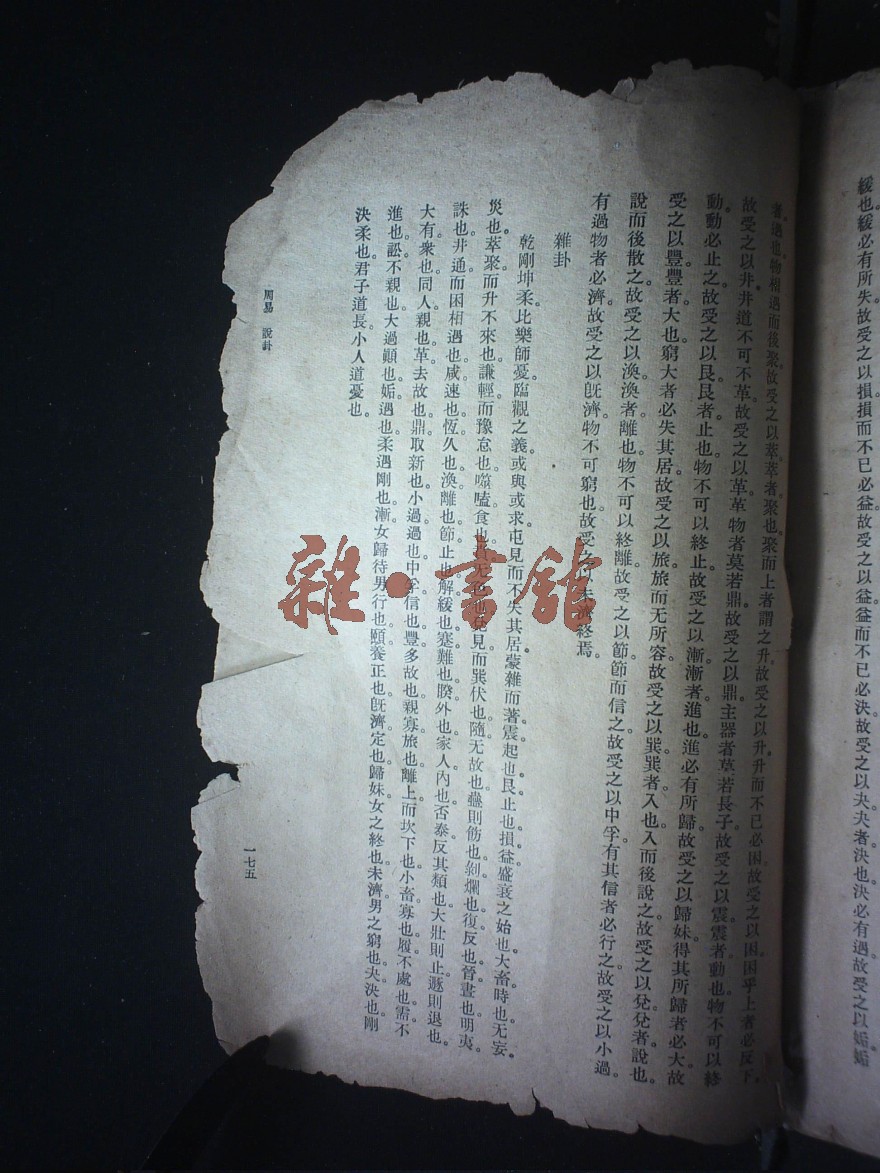 緩也緩必有所失故受之以損損而不已必益故受之以益益而不已必決故受之以夬夬者決也決必有遇故受之以姤姤
者遇也物相遇而後聚故受之以萃萃者聚也聚而上者謂之升故受之以升升而不已必困故受之以困困乎上者必反下
故受之以井井道不可不革故受之以革革物者莫若鼎故受之以鼎主器者莫若長子故受之以震震者動也物不可以終
動動必止之故受之以艮艮者止也物不可以終止故受之以漸漸者進也進必有所歸故受之以歸妹得其所歸者必大故
受之以豐豐者大也窮大者必失其居故受之以旅旅而无所容故受之以巽巽者入也入而後說之故受之以兌兌者說也
說而後散之故受之以渙渙者離也物不可以終離故受之以節節而信之故受之以中孚有其信者必行之故受之以小過
有過物者必濟故受之以旣濟物不可窮也故受之以未濟終焉
雜卦
乾剛坤柔比樂師憂臨觀之義或與或求屯見而不失其居蒙雜而著震起也艮止也損益盛衰之始也大畜時也无妄
災也萃聚而升不來也謙輕而豫怠也噬嗑食也賁无色也兌見而巽伏也隨无故也蠱則飭也剝爛也復反也晉晝也明夷
誅也井通而困相遇也咸速也恆久也渙離也節止也解緩也蹇難也睽外也家人內也否泰反其類也大壯則止遯則退也
大有衆也同人親也革去故也鼎取新也小過過也中孚信也豐多故也親寡旅也離上而坎下也小畜寡也履不處也需不
進也訟不親也大過顚也姤遇也柔遇剛也漸女歸待男行也頤養正也旣濟定也歸妹女之終也未濟男之窮也夬決也剛
決柔也君子道長小人道憂也
周易 說卦
一七五
雜·書館